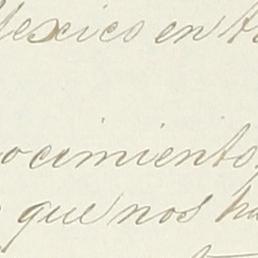 Mexico en
ocimiento,
que nos